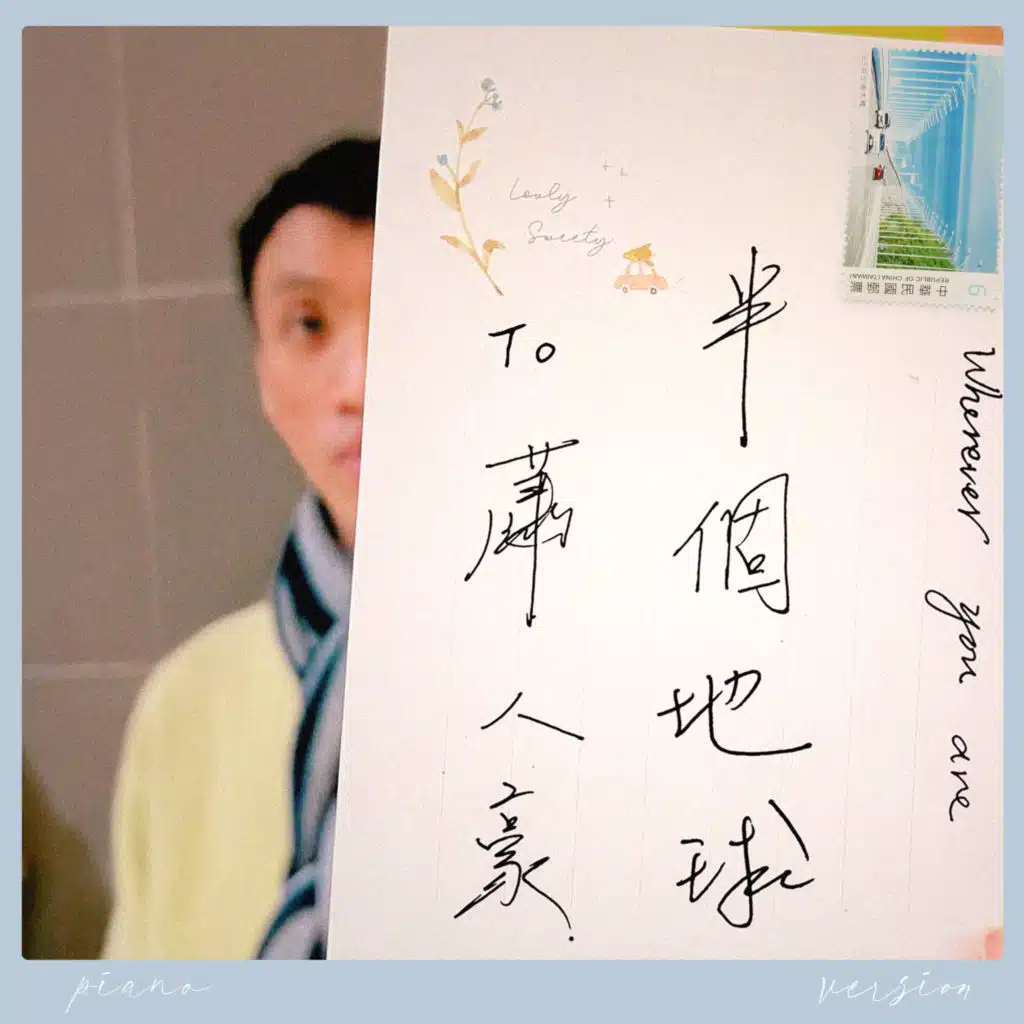 Lovly
Sweety
半個地球
To 蕭人豪.
Wherever you are
中華民國郵票
REPUBLIC OF CHINA (TAIWAN)
6
piano version